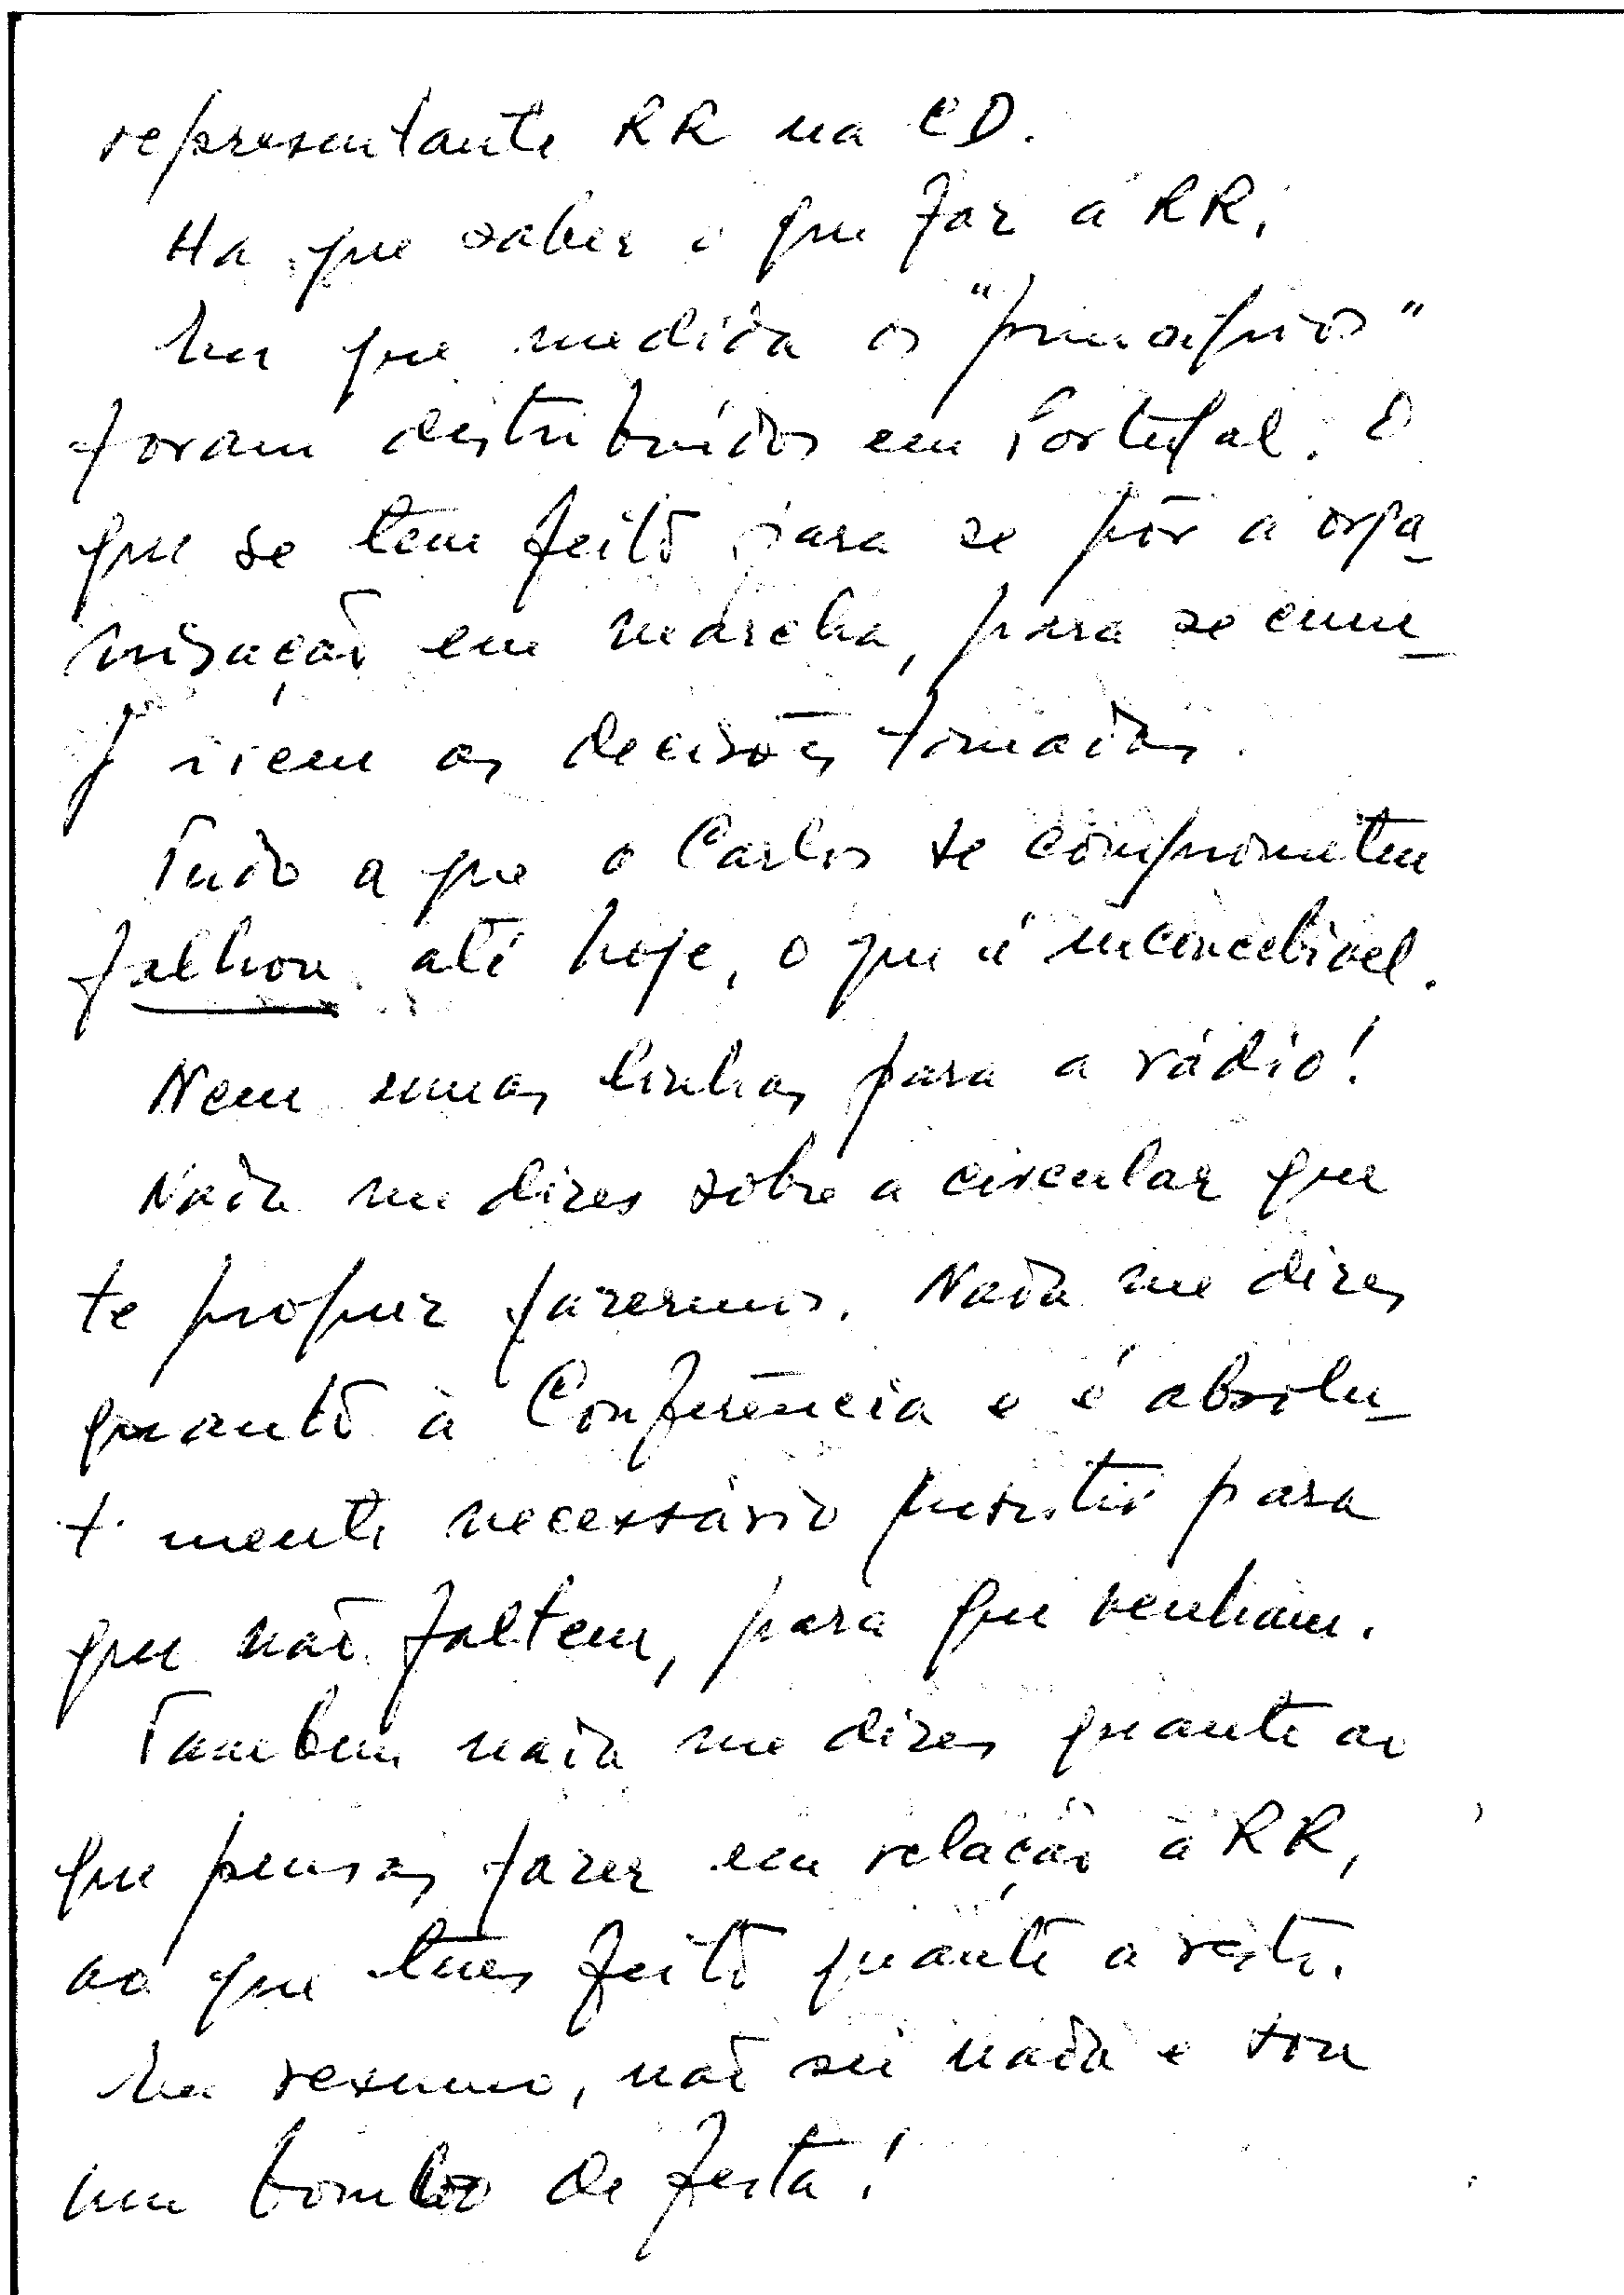 representante RR na CD.
Ha que saber o que faz a RR,
em que medida os "principios"
foram distribuidos em Portugal. O
que se tem feito para se pôr a orga-
nização em marcha, para se cum-
prirem as decisões tomadas.
Tudo a que o Carlos se comprometeu
falhou até hoje, o que é inconcebivel.
Nem umas linhas para a rádio!
Nada me dizes sobre a circular que
te propuz fazermos. Nada me dizes
quanto à Conferência e é absolu-
tamente necessário insistir para
que não faltem, para que venham.
Tambem nada me dizes quanto ao
que pensas fazer em relação à RR,
ao que tens feito quanto a isto.
Em resumo, não sei nada e sou
um bombo de festa!